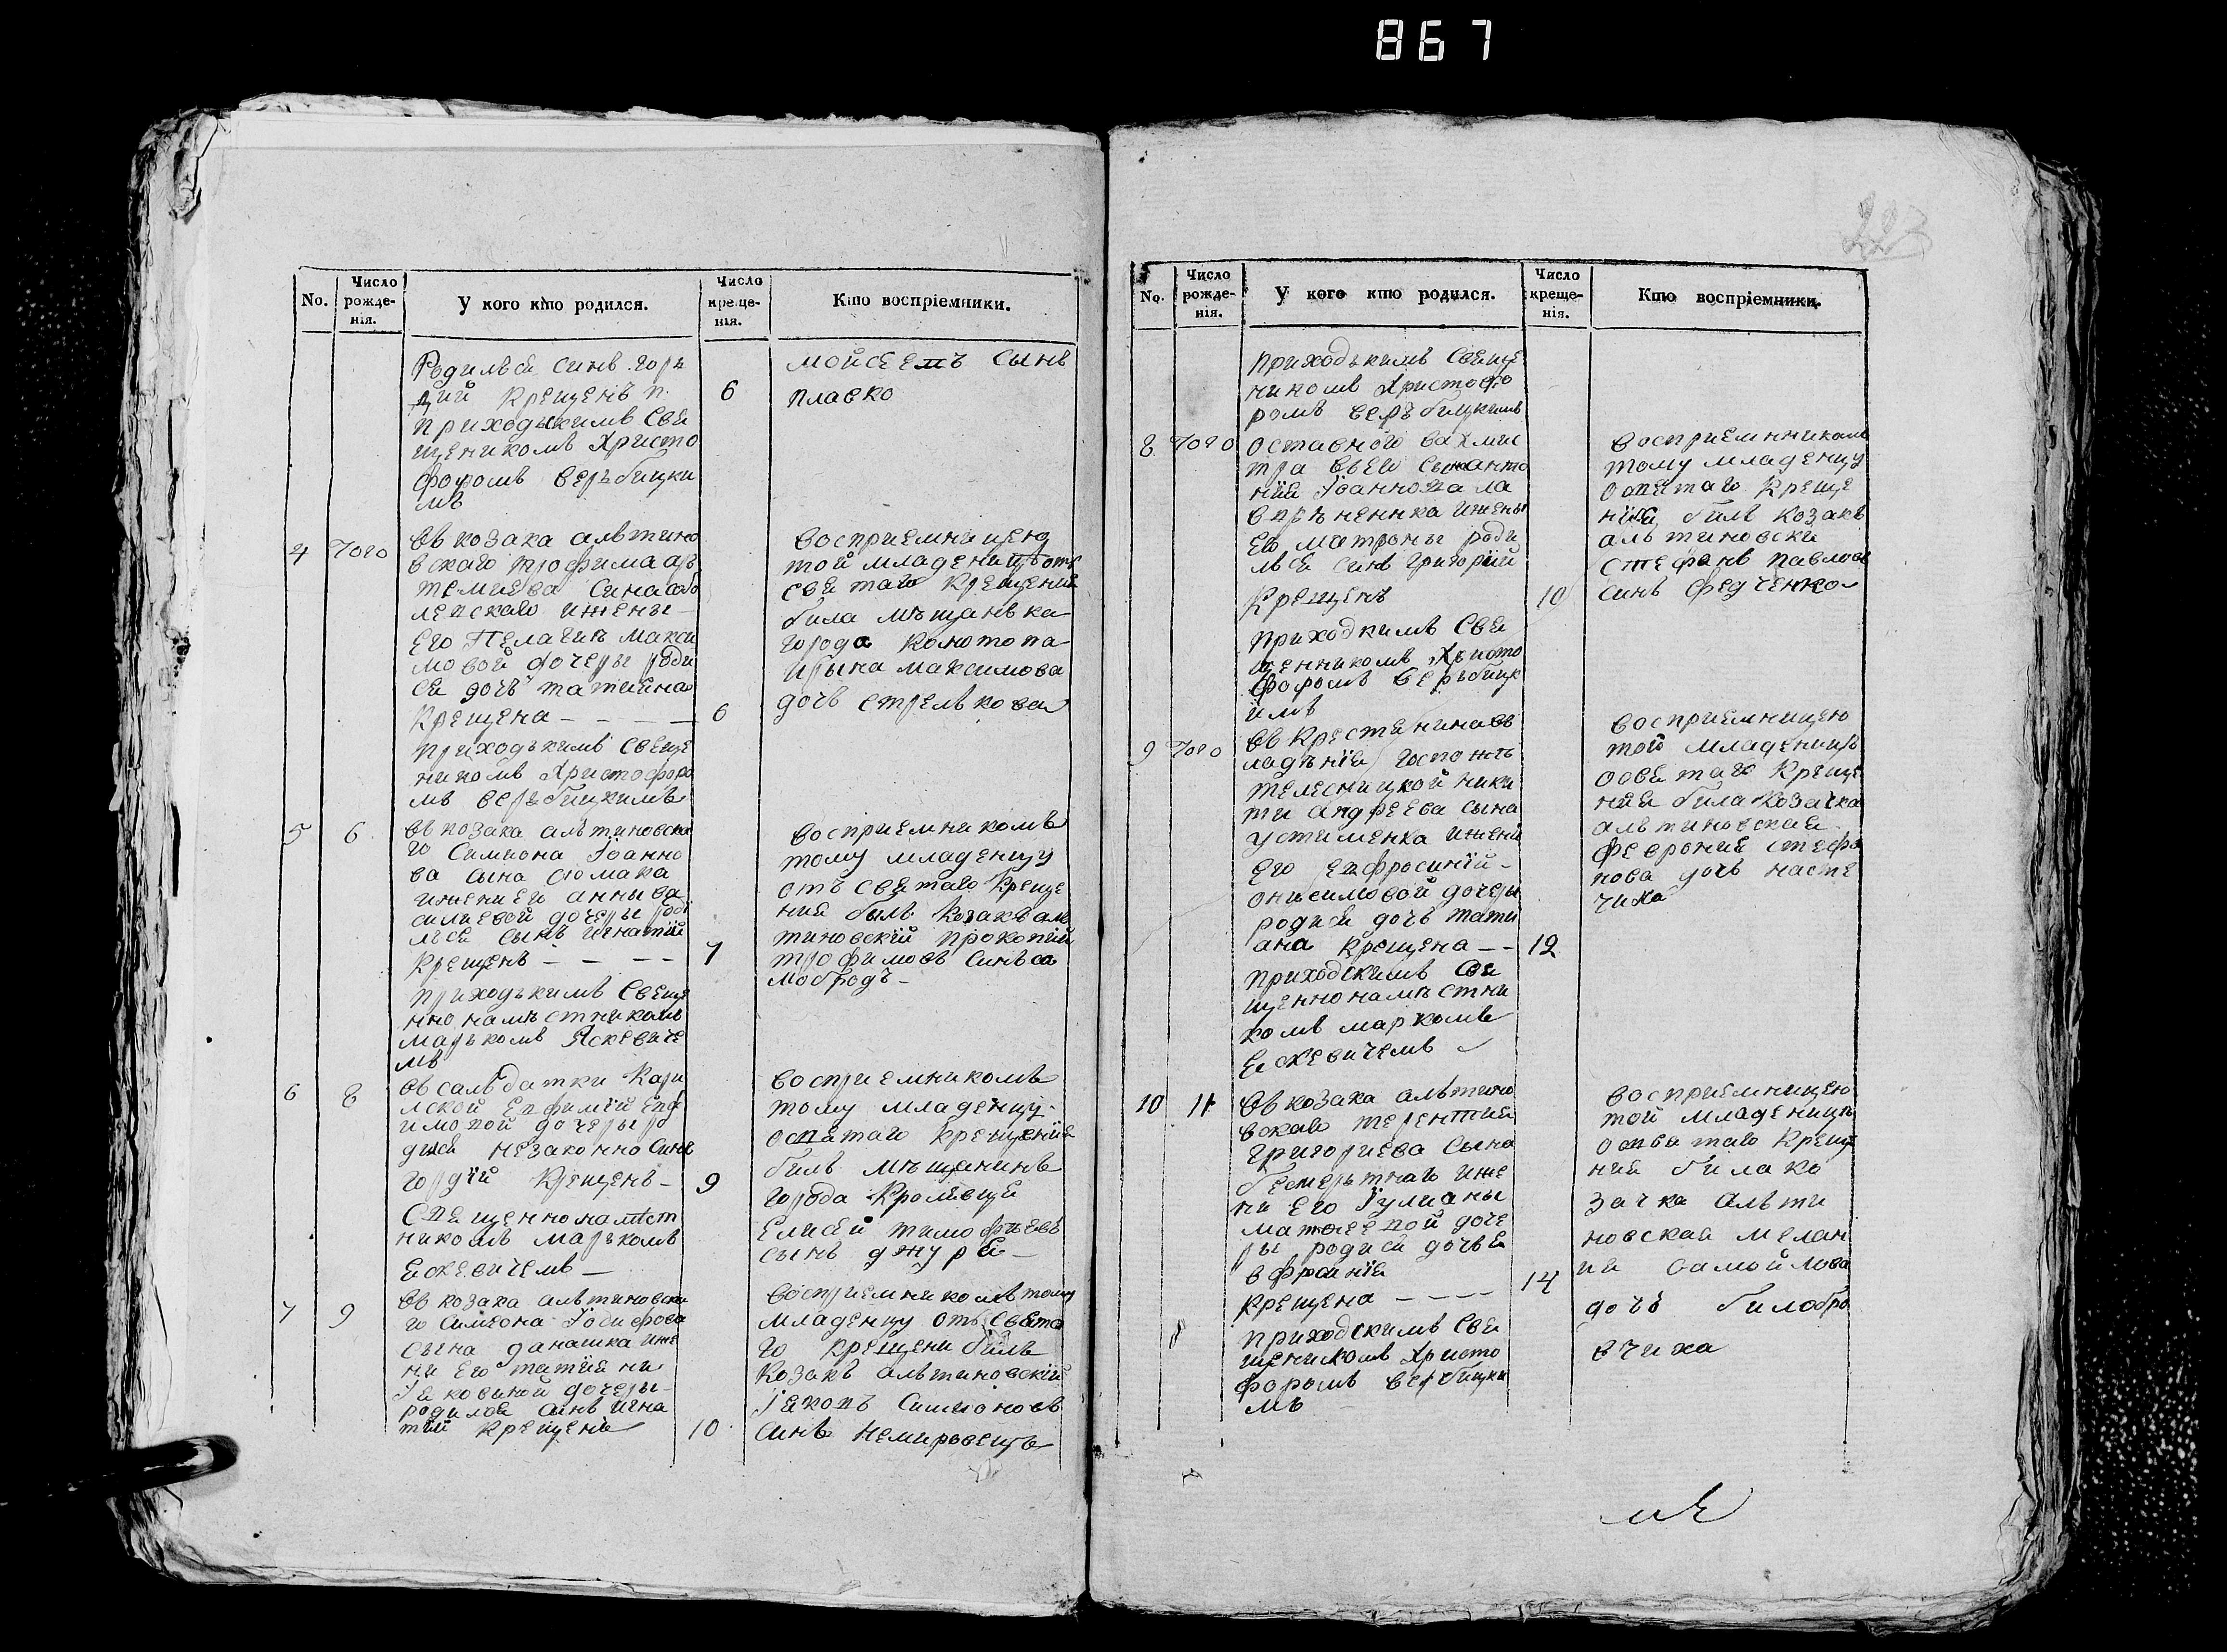 867
223
No.
Число рожде-нія.
У кого кто родился.
Число креще-нія.
Кто воспріемники.
Родилься синъ горъ
дий Крещенъ п.
6
приходъкимъ Свя
щеникомъ Христо
форомъ веръбицки
мъ
мойсеемъ сынъ
плавко
4 Того
Въ козака алътино
вскаго трофима ар
темиева Сина собо
левскаго ижены
Его Пелагиъ макси
мовой дочеры роди
ся дочъ татияна
Крещена - - - - 6
приходъкимъ Свяще
никомъ Христофоро
мъ веръбицкимъ
восприемницею
той младеницъ отъ
святаго Крещения
била мъщанъка
города конотопа
ирына максимова
дочъ стрелъкова
5 6
Въ козака алътиновска
го Симиона Іоанно
ва сына
ижени ей анны ва
силиевой дочеры роді
лься сынъ игнатий
Крещенъ - - - - 7
приходъкимъ Свяще
нно намъстникомъ
маръкомъ Яскевиче
мъ
восприемникомъ
тому младенцу
отъ святаго Креще
ния былъ козакъ алъ
тиновскій прокопий
трофимовъ Синъ са
мобродъ -
6 8
Въ салъдатки Кари
лской Ефимїй Еф
имовой дочеры ро
дися незаконно Синъ
гордїй Крещенъ - 9
Священно намъст
никомъ маръкомъ
Яскевичемъ -
восприемникомъ
тому младенцу
освятаго крещения
билъ мъщенинъ
города Кролевця
Елисей тимофиевъ
сынъ джура -
7 9
Въ козака алътиновска
го Симеона Іосифова
сына данашка иже
ни Его татияни
Іяковиной дочеры
родился синъ игна
тий крещенъ 10
восприемникомъ тому
младенцу отъ Свята
го крещени билъ
Козакъ алътиновскїй
Іяковъ Симионовъ
Синъ Немировецъ
No.
Число рожде-нія.
У кого кто родился.
Число креще-нія.
Кто воспріемники.
приходъкимъ Свяще
никомъ Христофо
ромъ веръбицкимъ
8 Того
оставного вахмис
тра
нїя Іоанно
ижены
Его матроны роди
лься синъ григорїй
Крещенъ 10
приходкимъ Свя
щенникомъ Христо
форомъ веръбицк
имъ
восприемникомъ
тому младенцу
освятаго Креще
нїя билъ козакъ
алътиновски
стефанъ павловъ
синъ Федченко
9 Того
Въ Крестянина въ
ладънїя госпожъ
телесницкой ники
ти андреева сына
устименка ижени
его ефросинїй
онисимовой дочеры
родися дочъ тати
ана крещена - - 12
приходскимъ Свя
щенно намъстни
комъ маркомъ
Яскевичемъ
восприемницею
той младеницъ
освятаго Креще
ния била козачка
алътиновская
Феврония стефа
нова дочъ насте
чиха
10 11
Въ козака алътино
вскаго терентия
григориева сына
безмертнаго иже
ни его Іулианы
матвеевой доче
ры родися дочъ е
вфранїя
крещена - - - - 14
приходскимъ Свя
щеникомъ Христо
форомъ вербицки
мъ
восприемницею
той младеницъ
освятаго Креще
ния била ко
зачка Алъти
новская мелан
ия самойлова
дочъ билобро
вчиха